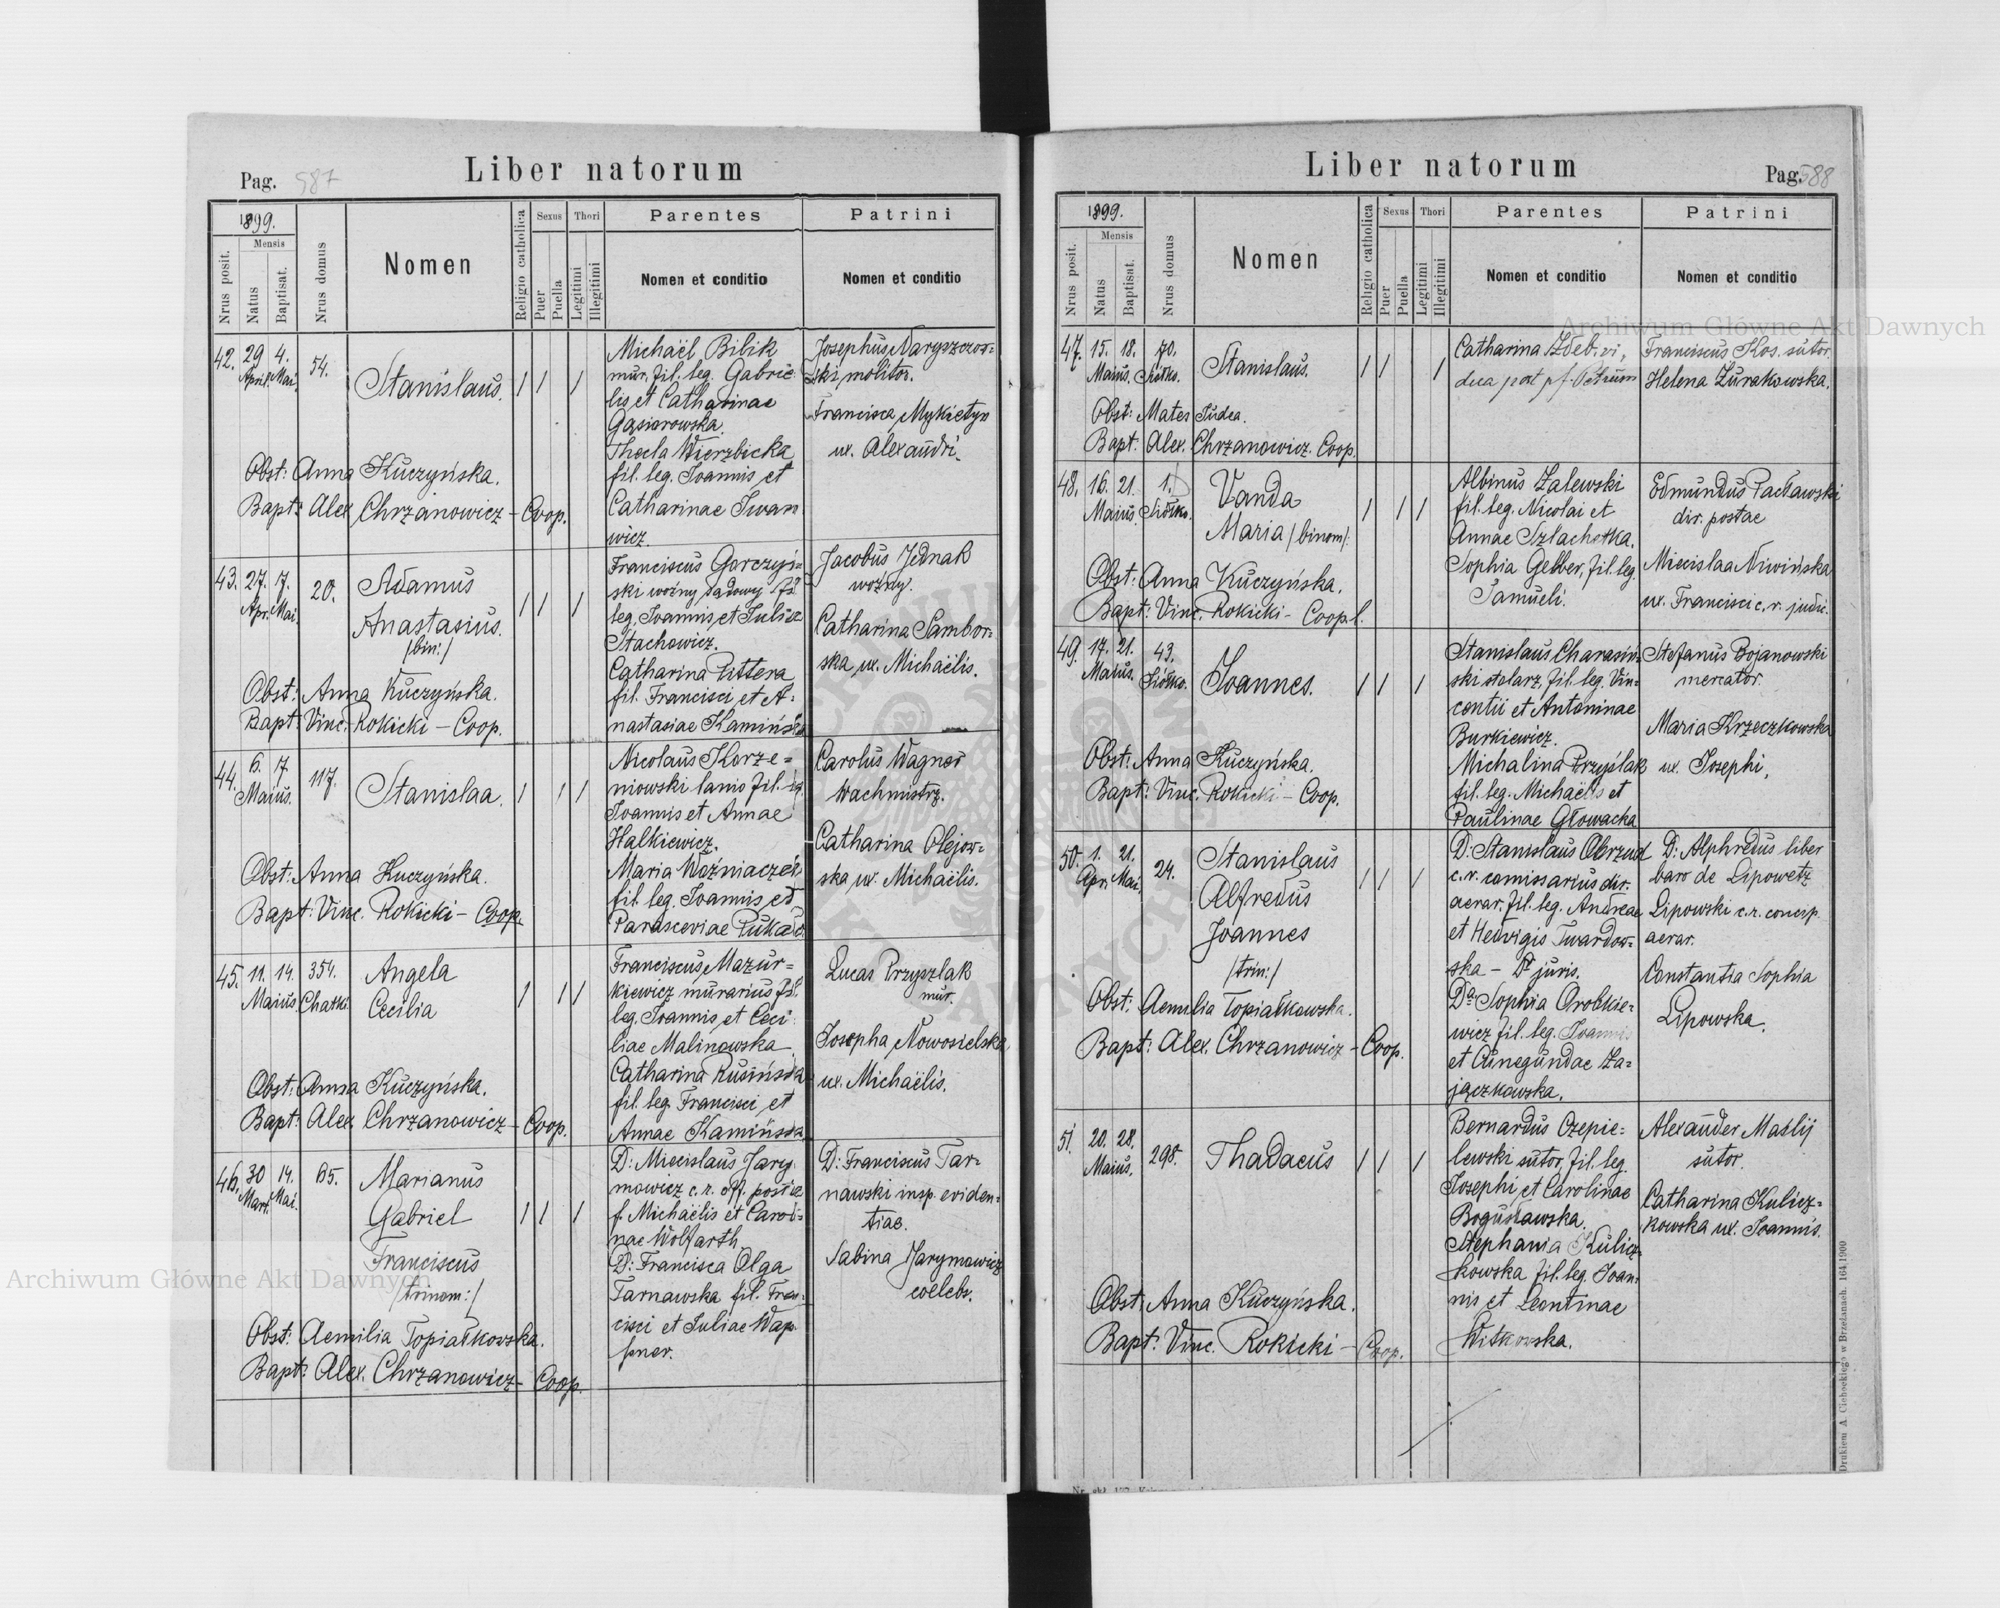 Pag. 587
Liber natorum
1899.
Nrus posit.
Mensis
Natus
Baptisat.
Nrus domus
Nomen
Religio catholica
Sexus
Puer
Puella
Thori
Legitimi
Illegitimi
Parentes
Nomen et conditio
Patrini
Nomen et conditio
42. 29 4. 54.
April. Mai.
Stanislaus.
Michaël Bibik
mur. fil. leg. Gabrie-
lis et Catharinae
Gąsiorowska.
Thecla Wierzbicka
fil. leg. Joannis et
Catharinae Iwan
wicz.
Josephus Naryszczow-
ski molitor.
Francisca Mykietyn
ux. Alexandri.
Obst: Anna Kuczyńska.
Bapt: Alex Chrzanowicz - Coop.
43. 27. 17. 20.
Apr. Mai.
Adamus
Anastasius.
/bin:/
Franciscus Gorczyń-
ski woźny sądowy fil.
leg. Joannis et Juliae
Stachowicz.
Catharina Pittera
fil. Francisci et A-
nastasiae Kamińska
Jacobus Jednak
woźny.
Catharina Sambor-
ska ux. Michaëlis.
Obst: Anna Kuczyńska.
Bapt: Vinc. Rokicki - Coop.
44. 6. 17. 117.
Maius.
Stanislaa.
Nicolaus Korze-
niowski lanio fil. leg.
Joannis et Annae
Halkiewicz.
Maria Woźniaczek
fil. leg. Joannis et
Parasceviae
Carolus Wagner
Wachmistrz.
Catharina Olejow-
ska ux. Michaëlis.
Obst: Anna Kuczyńska.
Bapt: Vinc. Rokicki - Coop.
45. 11. 14. 354.
Maius. Chatki.
Angela
Cecilia
Franciscus Mazur-
kiewicz murarius fil.
leg. Joannis et Ceci-
liae Malinowska
Catharina Rusińska
fil. leg. Francisci et
Annae Kamińska
Lucas Przyszlak
mur.
Josepha Nowosielska
ux. Michaëlis.
Obst: Anna Kuczyńska.
Bapt: Alex Chrzanowicz - Coop.
46. 30 14. 65.
Mart. Mai.
Marianus
Gabriel
Franciscus
/trinom:/
D: Miecislaus Jary-
mowicz c. r. off. postae
f. Michaëlis et Caroli-
nae Wolfarth
D: Francisca Olga
Tarnawska fil. Fran-
cisci et Juliae Wap-
pner.
D: Franciscus Tar-
nawski insp. eviden-
tiae.
Sabina Jarymowicz
coelebs.
Obst: Aemilia Topiałkowska.
Bapt: Alex. Chrzanowicz - Coop.
Liber natorum
Pag. 588
1899.
Nrus posit.
Mensis
Natus
Baptisat.
Nrus domus
Nomen
Religio catholica
Sexus
Puer
Puella
Thori
Legitimi
Illegitimi
Parentes
Nomen et conditio
Patrini
Nomen et conditio
47. 15. 18. 70.
Maius. Siółko.
Stanislaus.
Catharina vi-
dua post pf. Petrum
Franciscus Kos. sutor.
Helena Żurakowska.
Obst: Mates Judea.
Bapt: Alex. Chrzanowicz. Coop.
48. 16. 21. 1.
Maius. Siółko.
Vanda
Maria /binom/:
Albinus Zalewski
fil. leg. Nicolai et
Annae Szlachetka.
Sophia Gelber, fil. leg.
Samueli.
Edmundus Pacławski
dir. postae
Miecislaa Niwińska
ux. Francisci c. r. judic.
Obst: Anna Kuczyńska.
Bapt: Vinc. Rokicki - Coopl.
49. 17. 21. 43.
Maius. Siółko.
Joannes.
Stanislaus Charasiń-
ski stolarz, fil. leg. Vin-
centii et Antoninae
Burkiewicz.
Michalina Przyślak
fil. leg. Michaëlis et
Paulinae Głowacka
Stefanus Bojanowski
mercator.
Maria Krzeczkowska
ux. Josephi.
Obst: Anna Kuczyńska.
Bapt: Vinc. Rokicki - Coop.
50. 1. 21. 24.
Apr. Mai.
Stanislaus
Alfredus
Joannes
/trin:/
D: Stanislaus Obrzud
c. r. comissarius dir.
aerar. fil. leg. Andreae
et Hedvigis Twardow-
ska - Dr juris.
Da: Sophia Orobkie-
wicz fil. leg. Joannis
et Cunegundae Za-
jączkowska.
D: Alphredus liber
baro de Lipowetz
Lipowski c. r. concip.
aerar.
Constantia Sophia
Lipowska.
Obst: Aemilia Topiałkowska.
Bapt: Alex. Chrzanowicz - Coop.
51. 20. 28. 298.
Maius.
Thadaeus
Bernardus Czepie-
lewski sutor, fil. leg.
Josephi et Carolinae
Bogusławska.
Stephania Kulicz-
kowska fil. leg. Joan-
nis et Leontinae
Witkowska.
Alexander Maślij
sutor.
Catharina Kulicz-
kowska ux. Joannis.
Obst: Anna Kuczyńska.
Bapt: Vinc. Rokicki - Coop.
Drukiem A. Ciehockiego w Brzeżanach. 164.1900
Archiwum Główne Akt Dawnych
Archiwum Główne Akt Dawnych